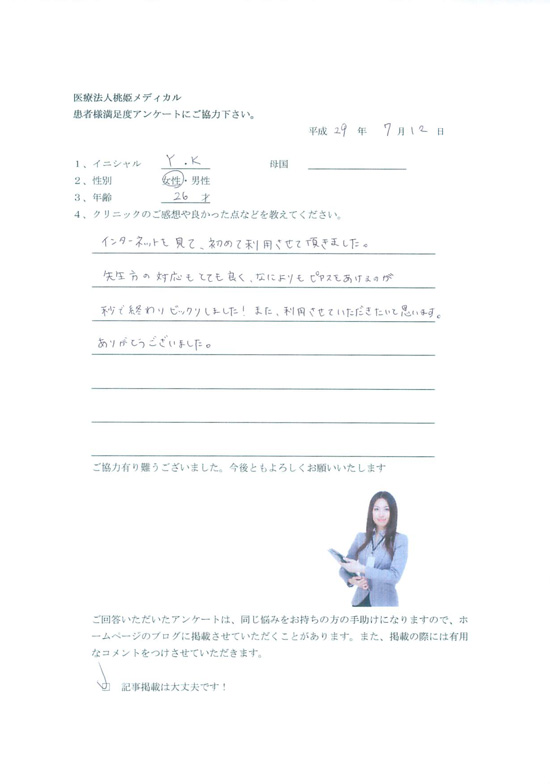 医療法人桃姫メディカル
患者様満足度アンケートにご協力下さい。
平成 29 年 7 月 12 日
1、イニシャル Y.K 母国
2、性別 女性・男性
3、年齢 26 才
4、クリニックのご感想や良かった点などを教えてください。
インターネットを見て、初めて利用させて頂きました。
先生方の対応もとても良く、なによりもピアスをあけるのが
秒で終わりビックリしました！また、利用させていただきたいと思います。
ありがとうございました。
ご協力有り難うございました。今後ともよろしくお願いいたします
ご回答いただいたアンケートは、同じ悩みをお持ちの方の手助けになりますので、ホ
ームページのブログに掲載させていただくことがあります。また、掲載の際には有用
なコメントをつけさせていただきます。
☑ 記事掲載は大丈夫です！